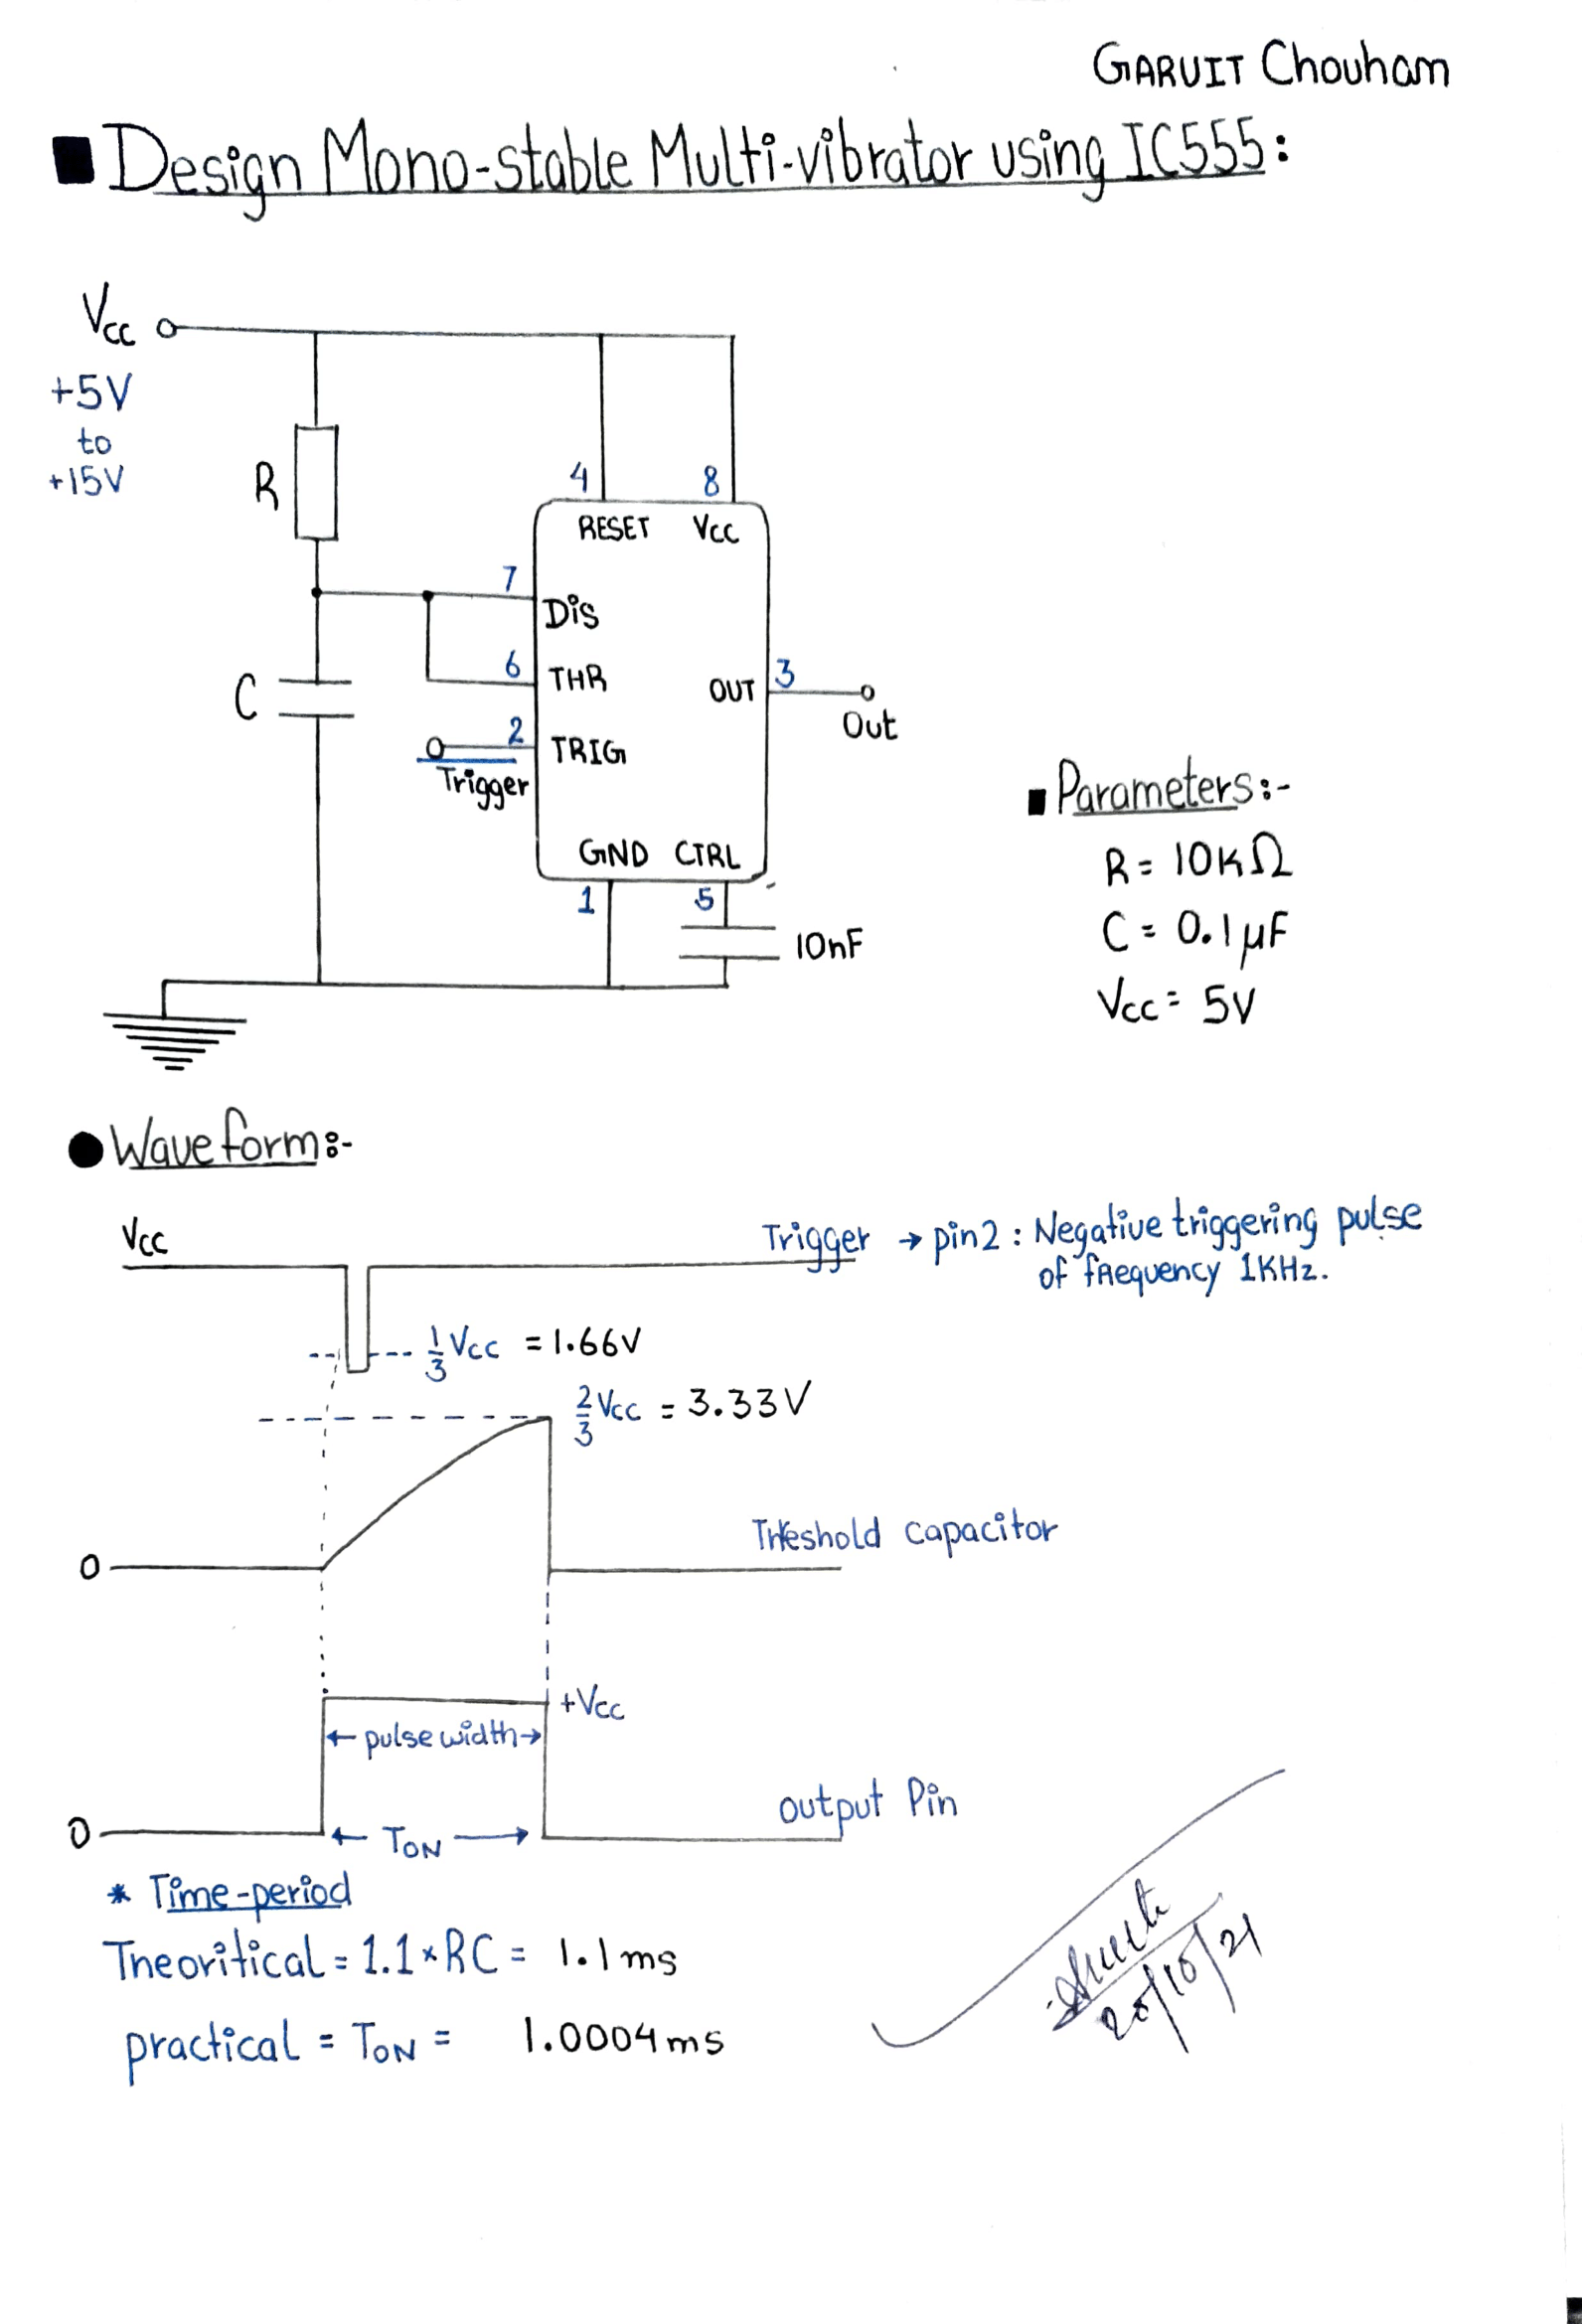 GARUIT Chouham
Design Mono-stable Multi-vibrator using IC555:
Vcc
+5V
to
+15V
R
4
8
RESET Vcc
7
Dis
6
THR
C
OUT
3
Out
2
TRIG
Trigger
GND CTRL
1
5
10nF
Parameters:-
R = 10KΩ
C = 0.1μF
Vcc = 5V
Waveform:-
Vcc
Trigger → pin2 : Negative triggering pulse
of frequency 1KHz.
1/3 Vcc = 1.66V
2/3 Vcc = 3.33V
Threshold capacitor
0
+Vcc
← pulse width →
output Pin
0
← TON →
* Time-period
Theoritical = 1.1 × RC = 1.1 ms
practical = TON = 1.0004 ms